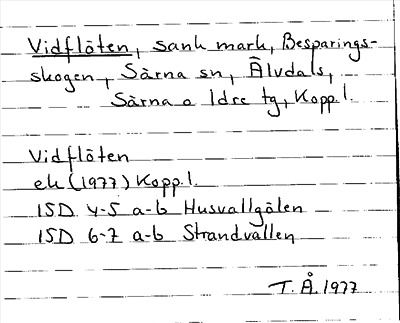 Vidflöten, sank mark, Besparings-
skogen, Särna sn, Älvdals,
Särna o Idre tg, Kopp.l.
Vidflöten
ek (1977) Kopp.l.
15D 4-5 a-b Husvallgölen
15D 6-7 a-b Strandvallen
T.Å. 1977